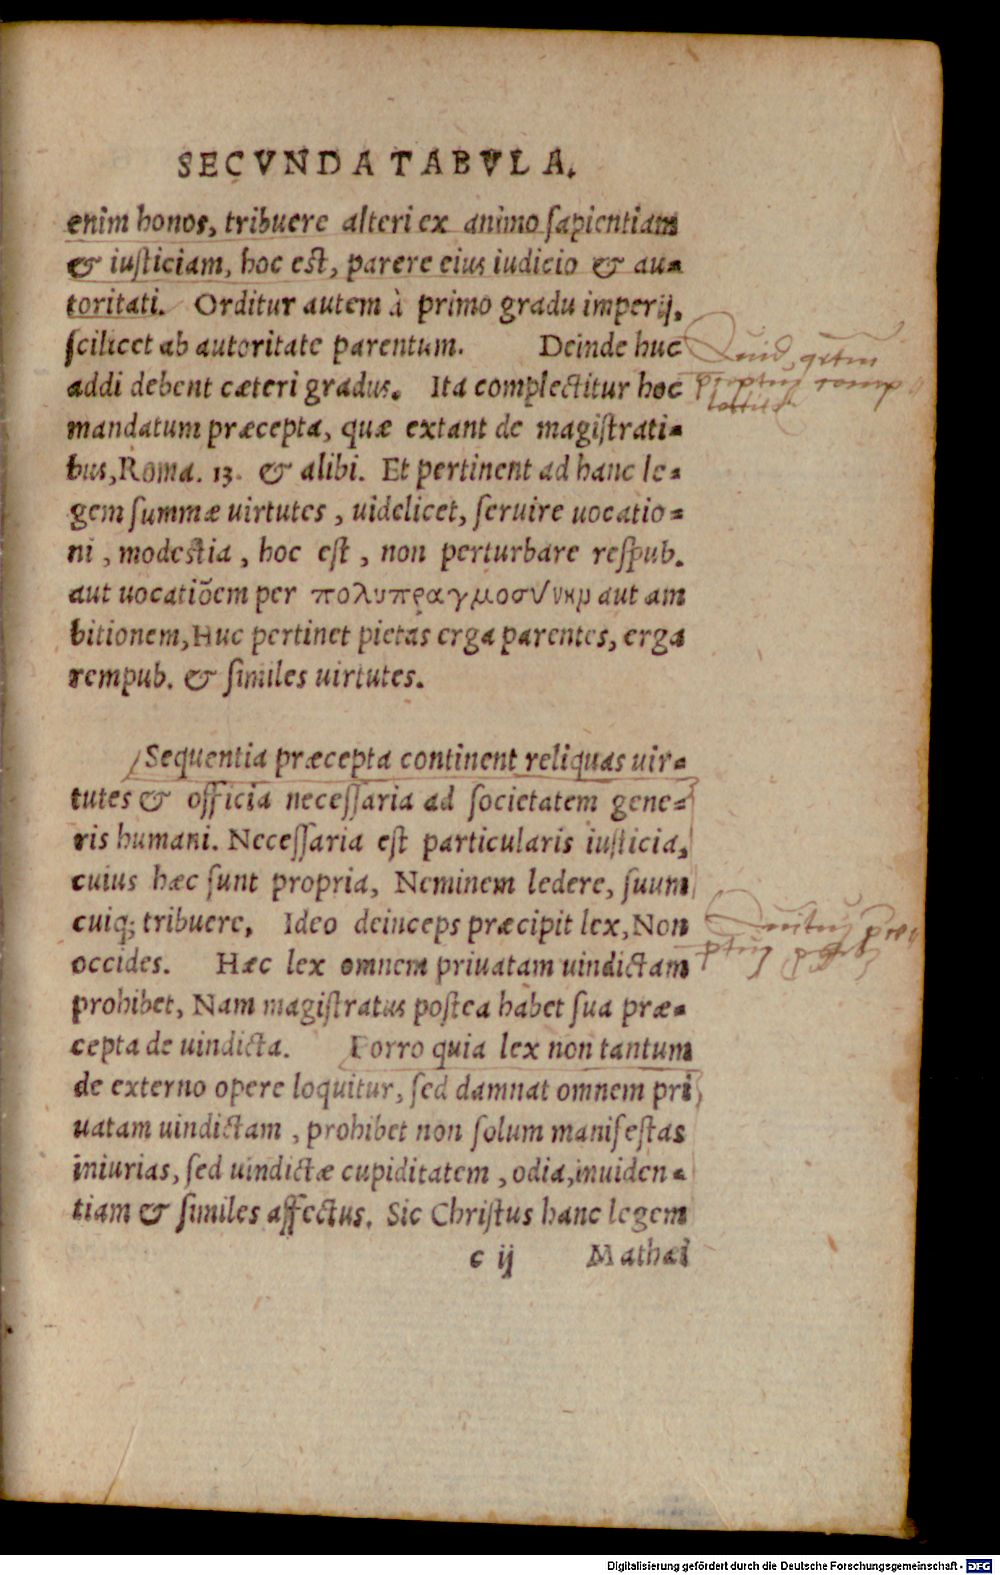 SECVNDA TABVLA.
enim honos, tribuere alteri ex animo sapientiam
& iusticiam, hoc est, parere eius iudicio & au-
toritati. Orditur autem à primo gradu imperij,
scilicet ab autoritate parentum. Deinde huc
addi debent cæteri gradus. Ita complectitur hoc
mandatum præcepta, quæ extant de magistrati-
bus, Roma. 13. & alibi. Et pertinent ad hanc le-
gem summæ uirtutes, uidelicet, seruire uocatio-
ni, modestia, hoc est, non perturbare respub.
aut uocatiõem per πολυπραγμοσύνην aut am
bitionem, Huc pertinet pietas erga parentes, erga
rempub. & similes uirtutes.
Sequentia præcepta continent reliquas uir-
tutes & officia necessaria ad societatem gene-
ris humani. Necessaria est particularis iusticia,
cuius hæc sunt propria, Neminem ledere, suum
cuiq; tribuere, Ideo deinceps præcipit lex, Non
occides. Hæc lex omnem priuatam uindictam
prohibet, Nam magistratus postea habet sua præ-
cepta de uindicta. Porro quia lex non tantum
de externo opere loquitur, sed damnat omnem pri
uatam uindictam, prohibet non solum manifestas
iniurias, sed uindictæ cupiditatem, odia, inuiden-
tiam & similes affectus. Sic Christus hanc legem
c ij Mathæi
Digitalisierung gefördert durch die Deutsche Forschungsgemeinschaft - DFG